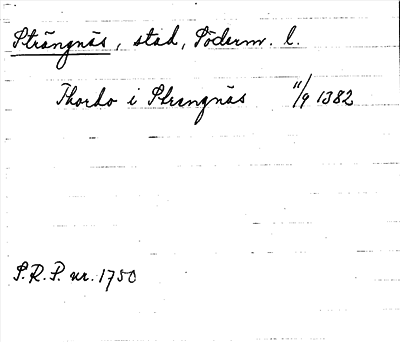 Strängnäs, stad, Söderm. l.
Thordo i Strengnäs 11/9 1382
S.R.P. nr. 1750